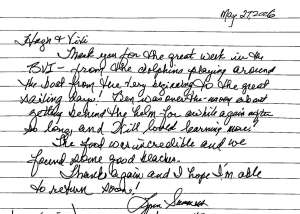 May 27 2006
Hazn & Vivi
Thank you for the great week in the
BVI - from the dolphins playing around
the boat from the very beginning to the great
sailing days! Ben was over-the-moon about
getting behind the helm for awhile again after
so long, and I still loved learning more!
The food was incredible and we
found some good beaches.
Thanks again and I hope I'm able
to return soon!
Lynn